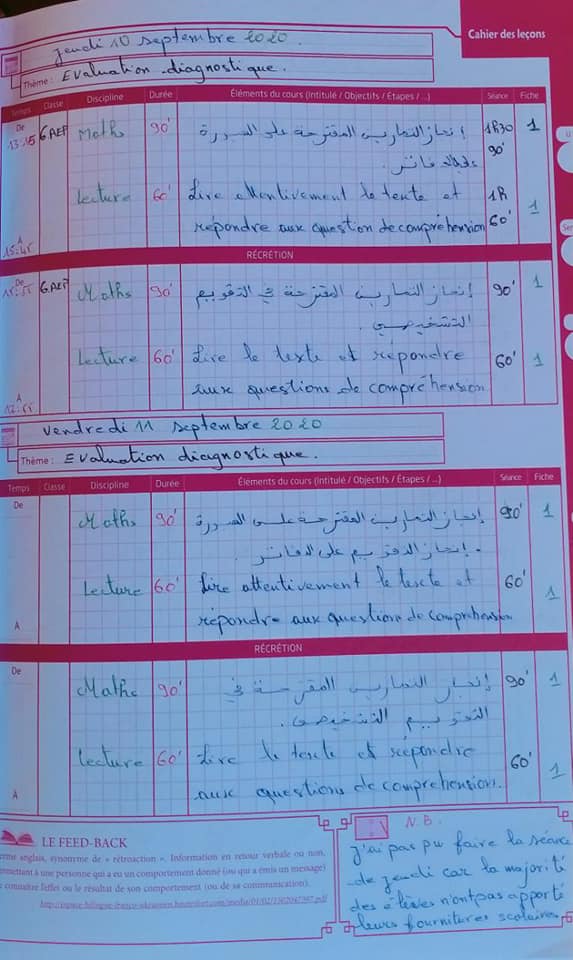 Cahier des leçons
jeudi 10 septembre 2020
Thème : Evaluation diagnostique.
Temps Classe Discipline Durée Éléments du cours (Intitulé / Objectifs / Étapes / ...) Séance Fiche
De 13:15 6AEP Maths 90' إنجاز التمارين المقترحة على الصورة 1H30 1
90'
Lecture 60' Lire attentivement le texte et 1H 1
répondre aux question de compréhension 60'
A 15:45
RÉCRÉTION
De 15:55 6AEP Maths 90' إنجاز التمارين المقترحة في التقويم 90' 1
التشخيصي.
Lecture 60' Lire le texte et répondre 60' 1
A aux questions de compréhension
vendredi 11 septembre 2020
Thème : Evaluation diagnostique.
Temps Classe Discipline Durée Éléments du cours (Intitulé / Objectifs / Étapes / ...) Séance Fiche
De Maths 90' إنجاز التمارين المقترحة على الصورة 90' 1
. إنجاز التقويم على الدفاتر
Lecture 60' Lire attentivement le texte et 60' 1
A répondre aux question de compréhension
RÉCRÉTION
De Maths 90' إنجاز التمارين المقترحة في 90' 1
التقويم التشخيصي.
Lecture 60' Lire le texte et répondre 60' 1
A aux questions de compréhension.
LE FEED-BACK
erme anglais, synonyme de « rétroaction ». Information en retour verbale ou non,
ermettant à une personne qui a eu un comportement donné (ou qui a émis un message)
connaître l'effet ou le résultat de son comportement (ou de sa communication).
N.B.
J'ai pas pu faire la séance
de jeudi car la majorité
des élèves n'ont pas apporté
leurs fournitures scolaires